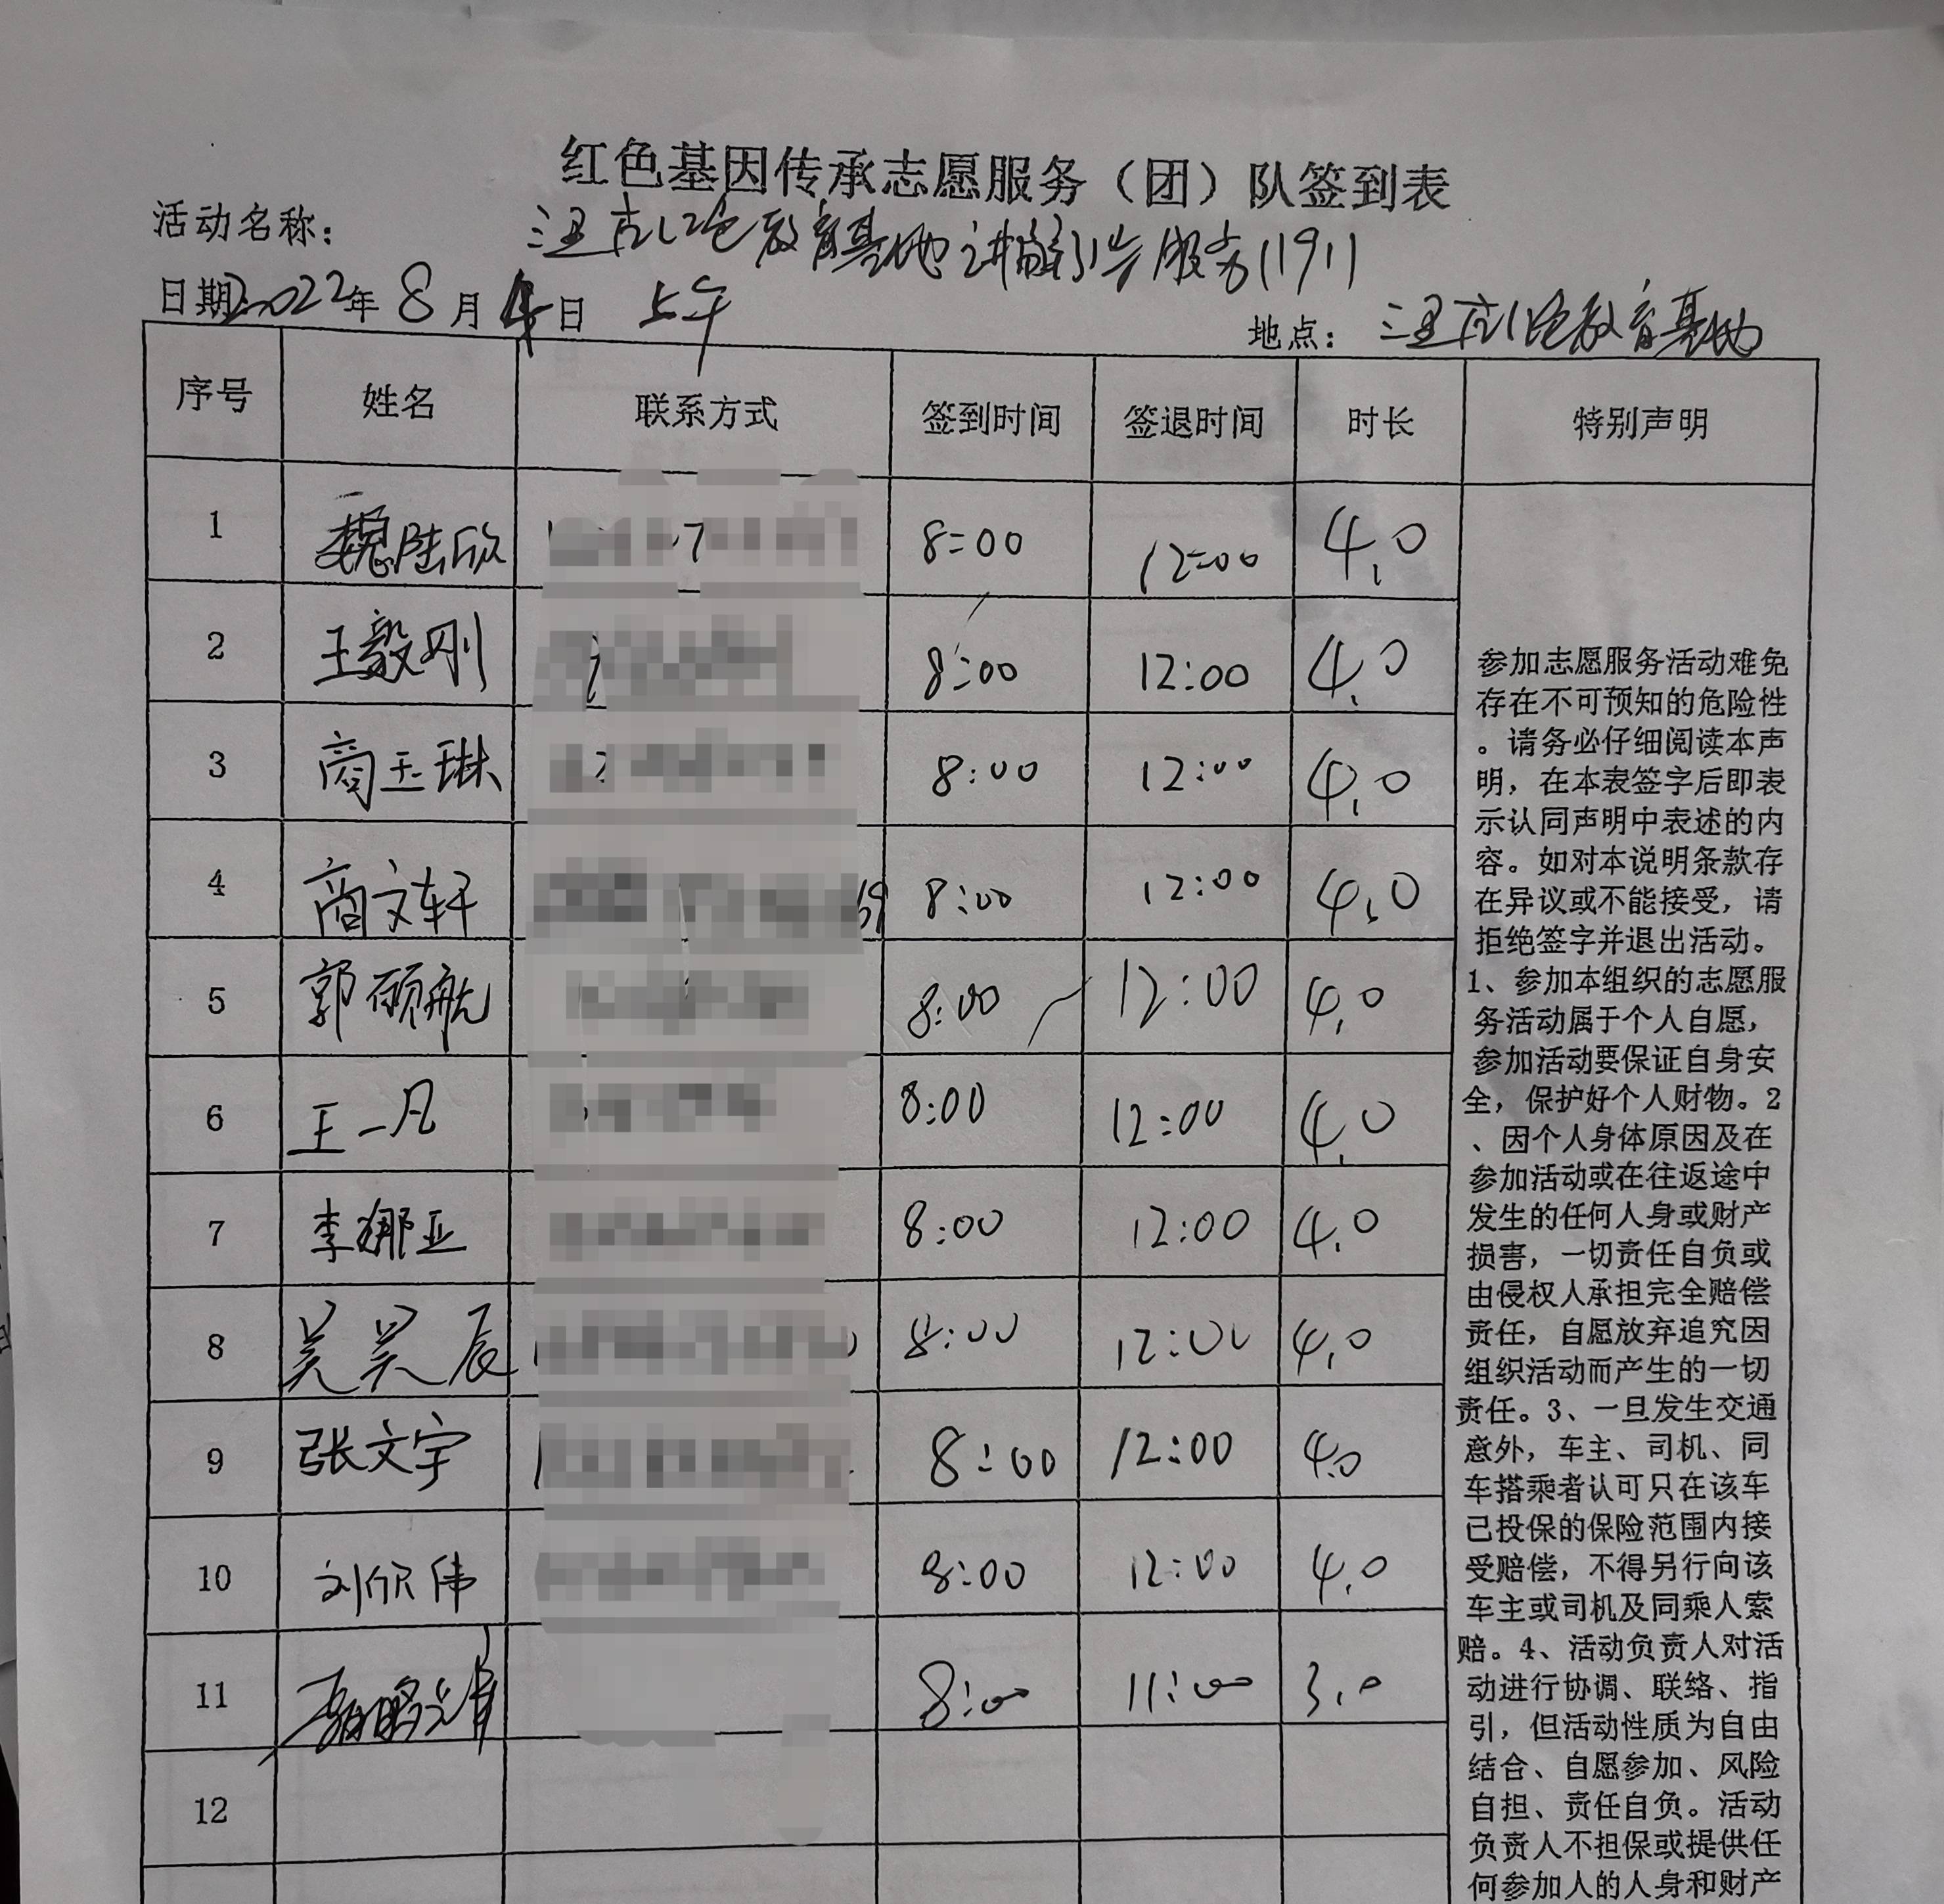 红色基因传承志愿服务（团）队签到表
活动名称： 红色教育基地讲解引导服务(191)
日期2022年8月4日 上午 地点： 红色教育基地
序号 姓名 联系方式 签到时间 签退时间 时长 特别声明
1 魏陆欣 8:00 12:00 4.0
2 王毅刚 8:00 12:00 4.0
3 商玉琳 8:00 12:00 4.0
4 商文轩 8:00 12:00 4.0
5 郭硕航 8:00 12:00 4.0
6 王一凡 8:00 12:00 4.0
7 李娜亚 8:00 12:00 4.0
8 吴昊辰 8:00 12:00 4.0
9 张文宇 8:00 12:00 4.0
10 刘欣伟 8:00 12:00 4.0
11 8:00 11:00 3.0
12
参加志愿服务活动难免
存在不可预知的危险性
。请务必仔细阅读本声
明，在本表签字后即表
示认同声明中表述的内
容。如对本说明条款存
在异议或不能接受，请
拒绝签字并退出活动。
1、参加本组织的志愿服
务活动属于个人自愿，
参加活动要保证自身安
全，保护好个人财物。2
、因个人身体原因及在
参加活动或在往返途中
发生的任何人身或财产
损害，一切责任自负或
由侵权人承担完全赔偿
责任，自愿放弃追究因
组织活动而产生的一切
责任。3、一旦发生交通
意外，车主、司机、同
车搭乘者认可只在该车
已投保的保险范围内接
受赔偿，不得另行向该
车主或司机及同乘人索
赔。4、活动负责人对活
动进行协调、联络、指
引，但活动性质为自由
结合、自愿参加、风险
自担、责任自负。活动
负责人不担保或提供任
何参加人的人身和财产